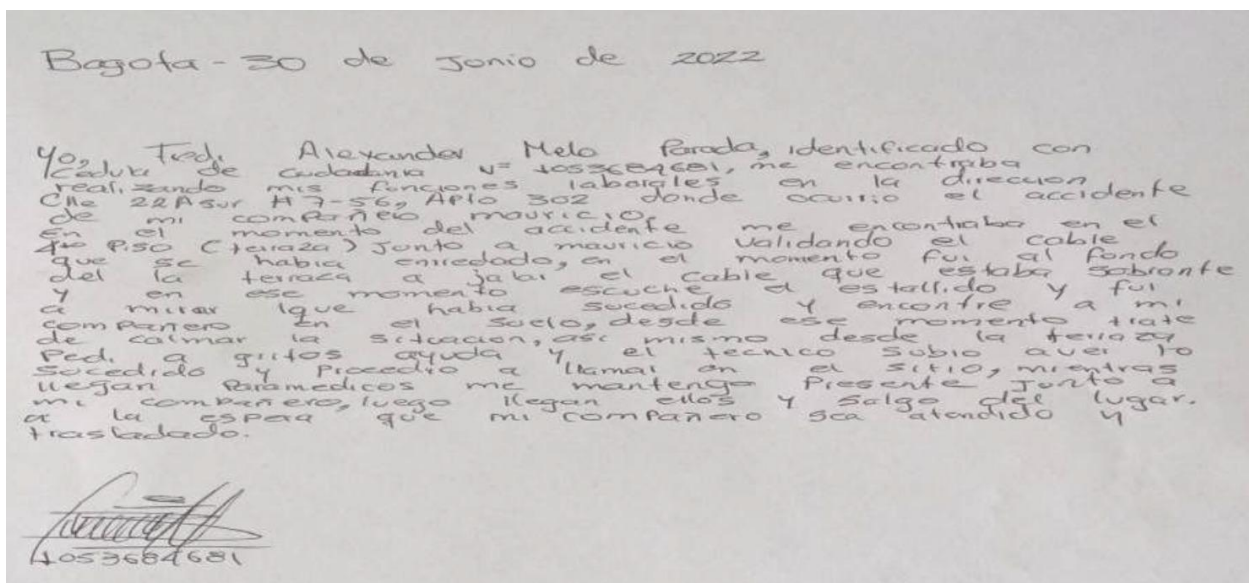 Bogota - 30 de Jonio de 2022
Yo, Fredi Alexander Melo Parada, identificado con
cedula de ciudadania N= 1053684681, me encontraba
realizando mis funciones laborales en la direccion
Clle 22A sur # 7-56, APto 302 donde ocurrio el accidente
de mi compañero mauricio.
En el momento del accidente me encontraba en el
4to Piso (terraza) Junto a mauricio validando el cable
que se habia enredado, en el momento fui al fondo
del la terraza a jalar el cable que estaba sobrante
y en ese momento escuche el estallido y fui
a mirar lque habia sucedido y encontre a mi
compañero en el suelo, desde ese momento trate
de calmar la situacion, asi mismo desde la terraza
Pedi a gritos ayuda y el tecnico subio aver lo
sucedido y Procedio a llamar en el sitio, mientras
llegan Paramedicos me mantengo Presente Junto a
mi compañero, luego llegan ellos y salgo del lugar.
a la espera que mi compañero sea atendido y
trasladado.
1053684681